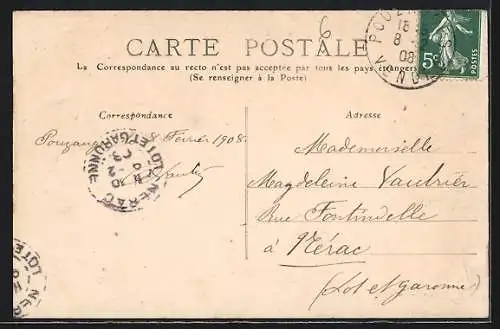 6
CARTE POSTALE
La Correspondance au recto n'est pas acceptée par tous les pays étrangers
(Se renseigner à la Poste)
5c
POSTES
18
8
08
Correspondance
Adresse
Pouzauges 8 Février 1908
Mademoiselle
Magdeleine Vautrier
Rue Fontindelle
à Nérac
(Lot et garonne)
NERAC
LOT ET GARONNE
10 -2
NER
LOT